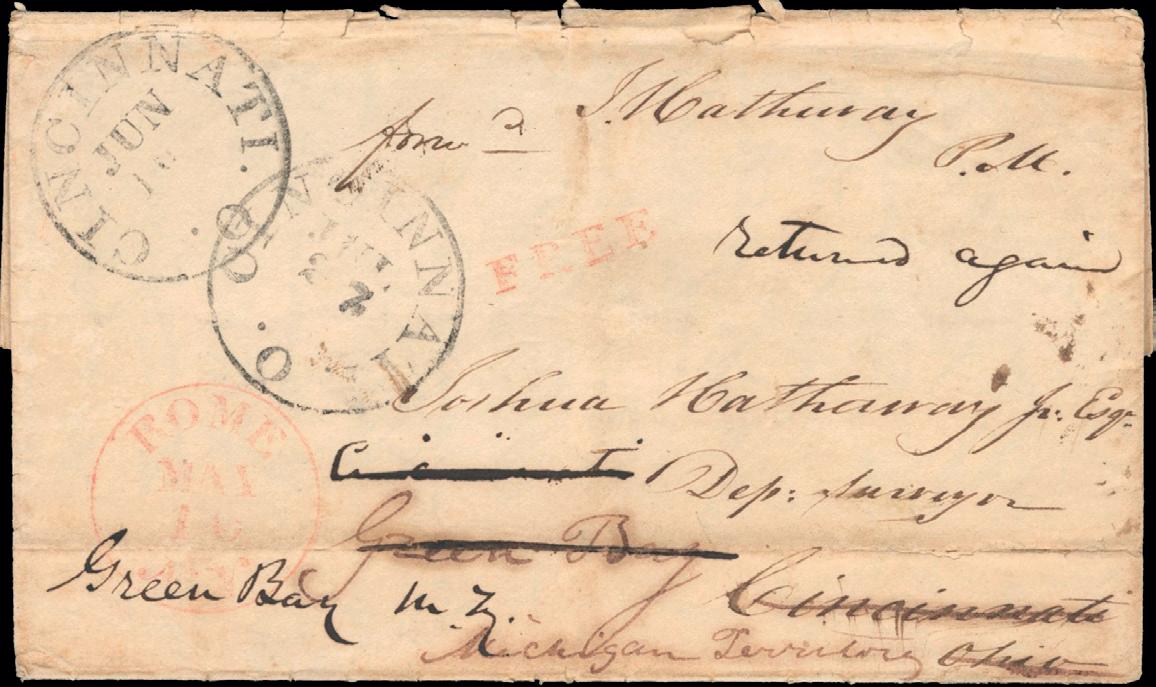 CINCINNATI. O.
JUN
forwd J. Hathaway
P.M.
CINCINNATI. O.
JUL
2
FREE
returned again
Joshua Hathaway Jr. Esqr
Cincinnati
Dep: Surveyor
ROME
MAY
16
N.Y.
Green Bay
Green Bay M.T.
Cincinnati
Michigan Territory Ohio